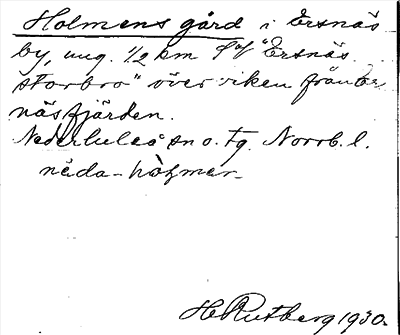 Holmens gård i Ersnäs
by, ung. 1/2 km S.V. "Ersnäs
storbro" över viken från Er
näsfjärden.
Nederluleå sn o. tg. Norrb. l.
nēda-hòłmer-
H Rutberg 1930.